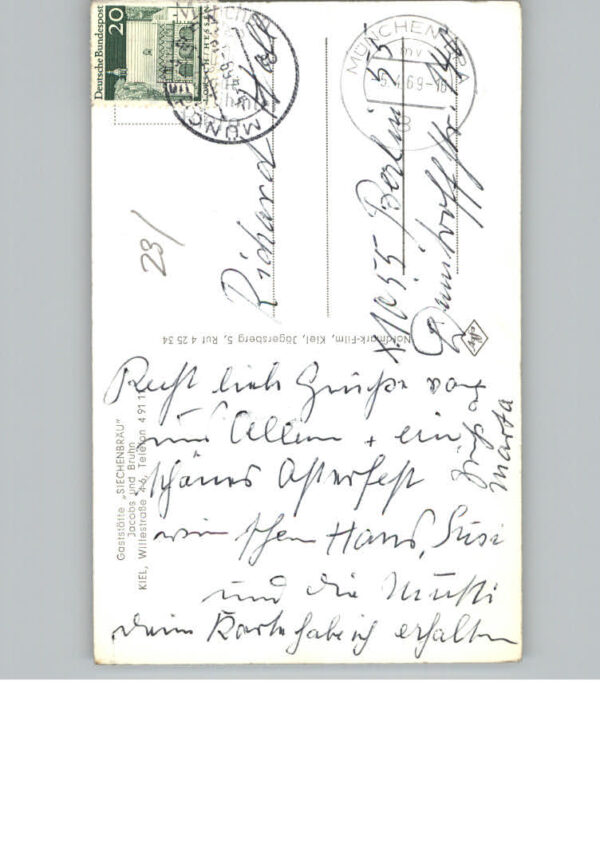 Deutsche Bundespost
20
LORSCH/HESSEN
MÜNCHEN
5.4.69-18
Richard
X 1055 Berlin 55
23/
Nordmark-Film, Kiel, Jägersberg 5, Ruf 4 25 34
Gaststätte „SIECHENBRÄU"
Jacobs und Bruhn
KIEL, Willestraße 4-6, Telefon 4 91 1
Recht liebe Grüße von
uns Allen + ein
schönes Osterfest
wünschen Hans, Susi
und die Mutti
deine Karte habe ich erhalten
Marta